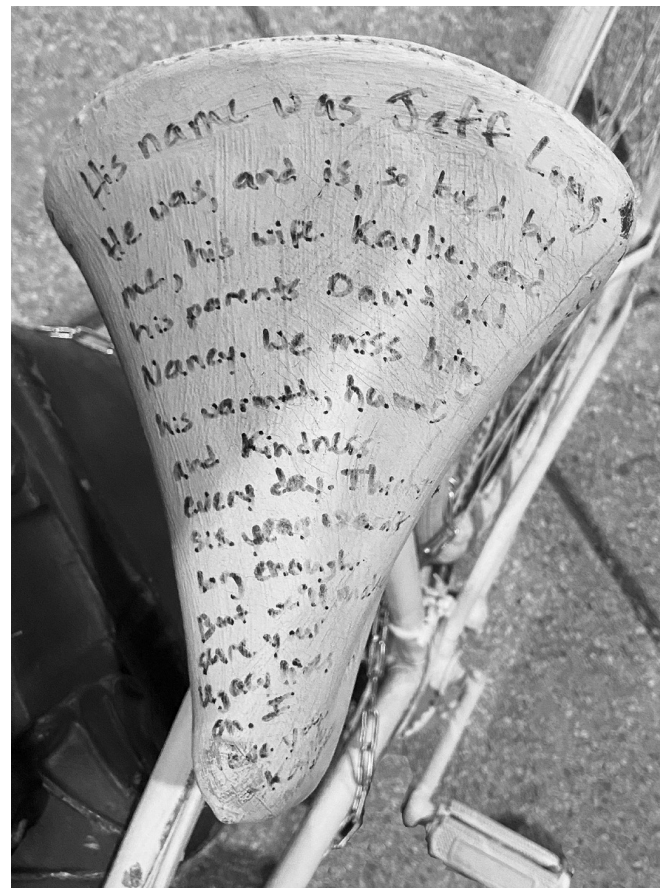 His name was Jeff Long.
He was, and is, so loved by
me, his wife Kaylie, and
his parents David and
Nancy. We miss him,
his warmth, humor,
and kindness
every day. Thirty
six years wasn't
long enough.
But we'll make
sure your
legacy lives
on. I
love you